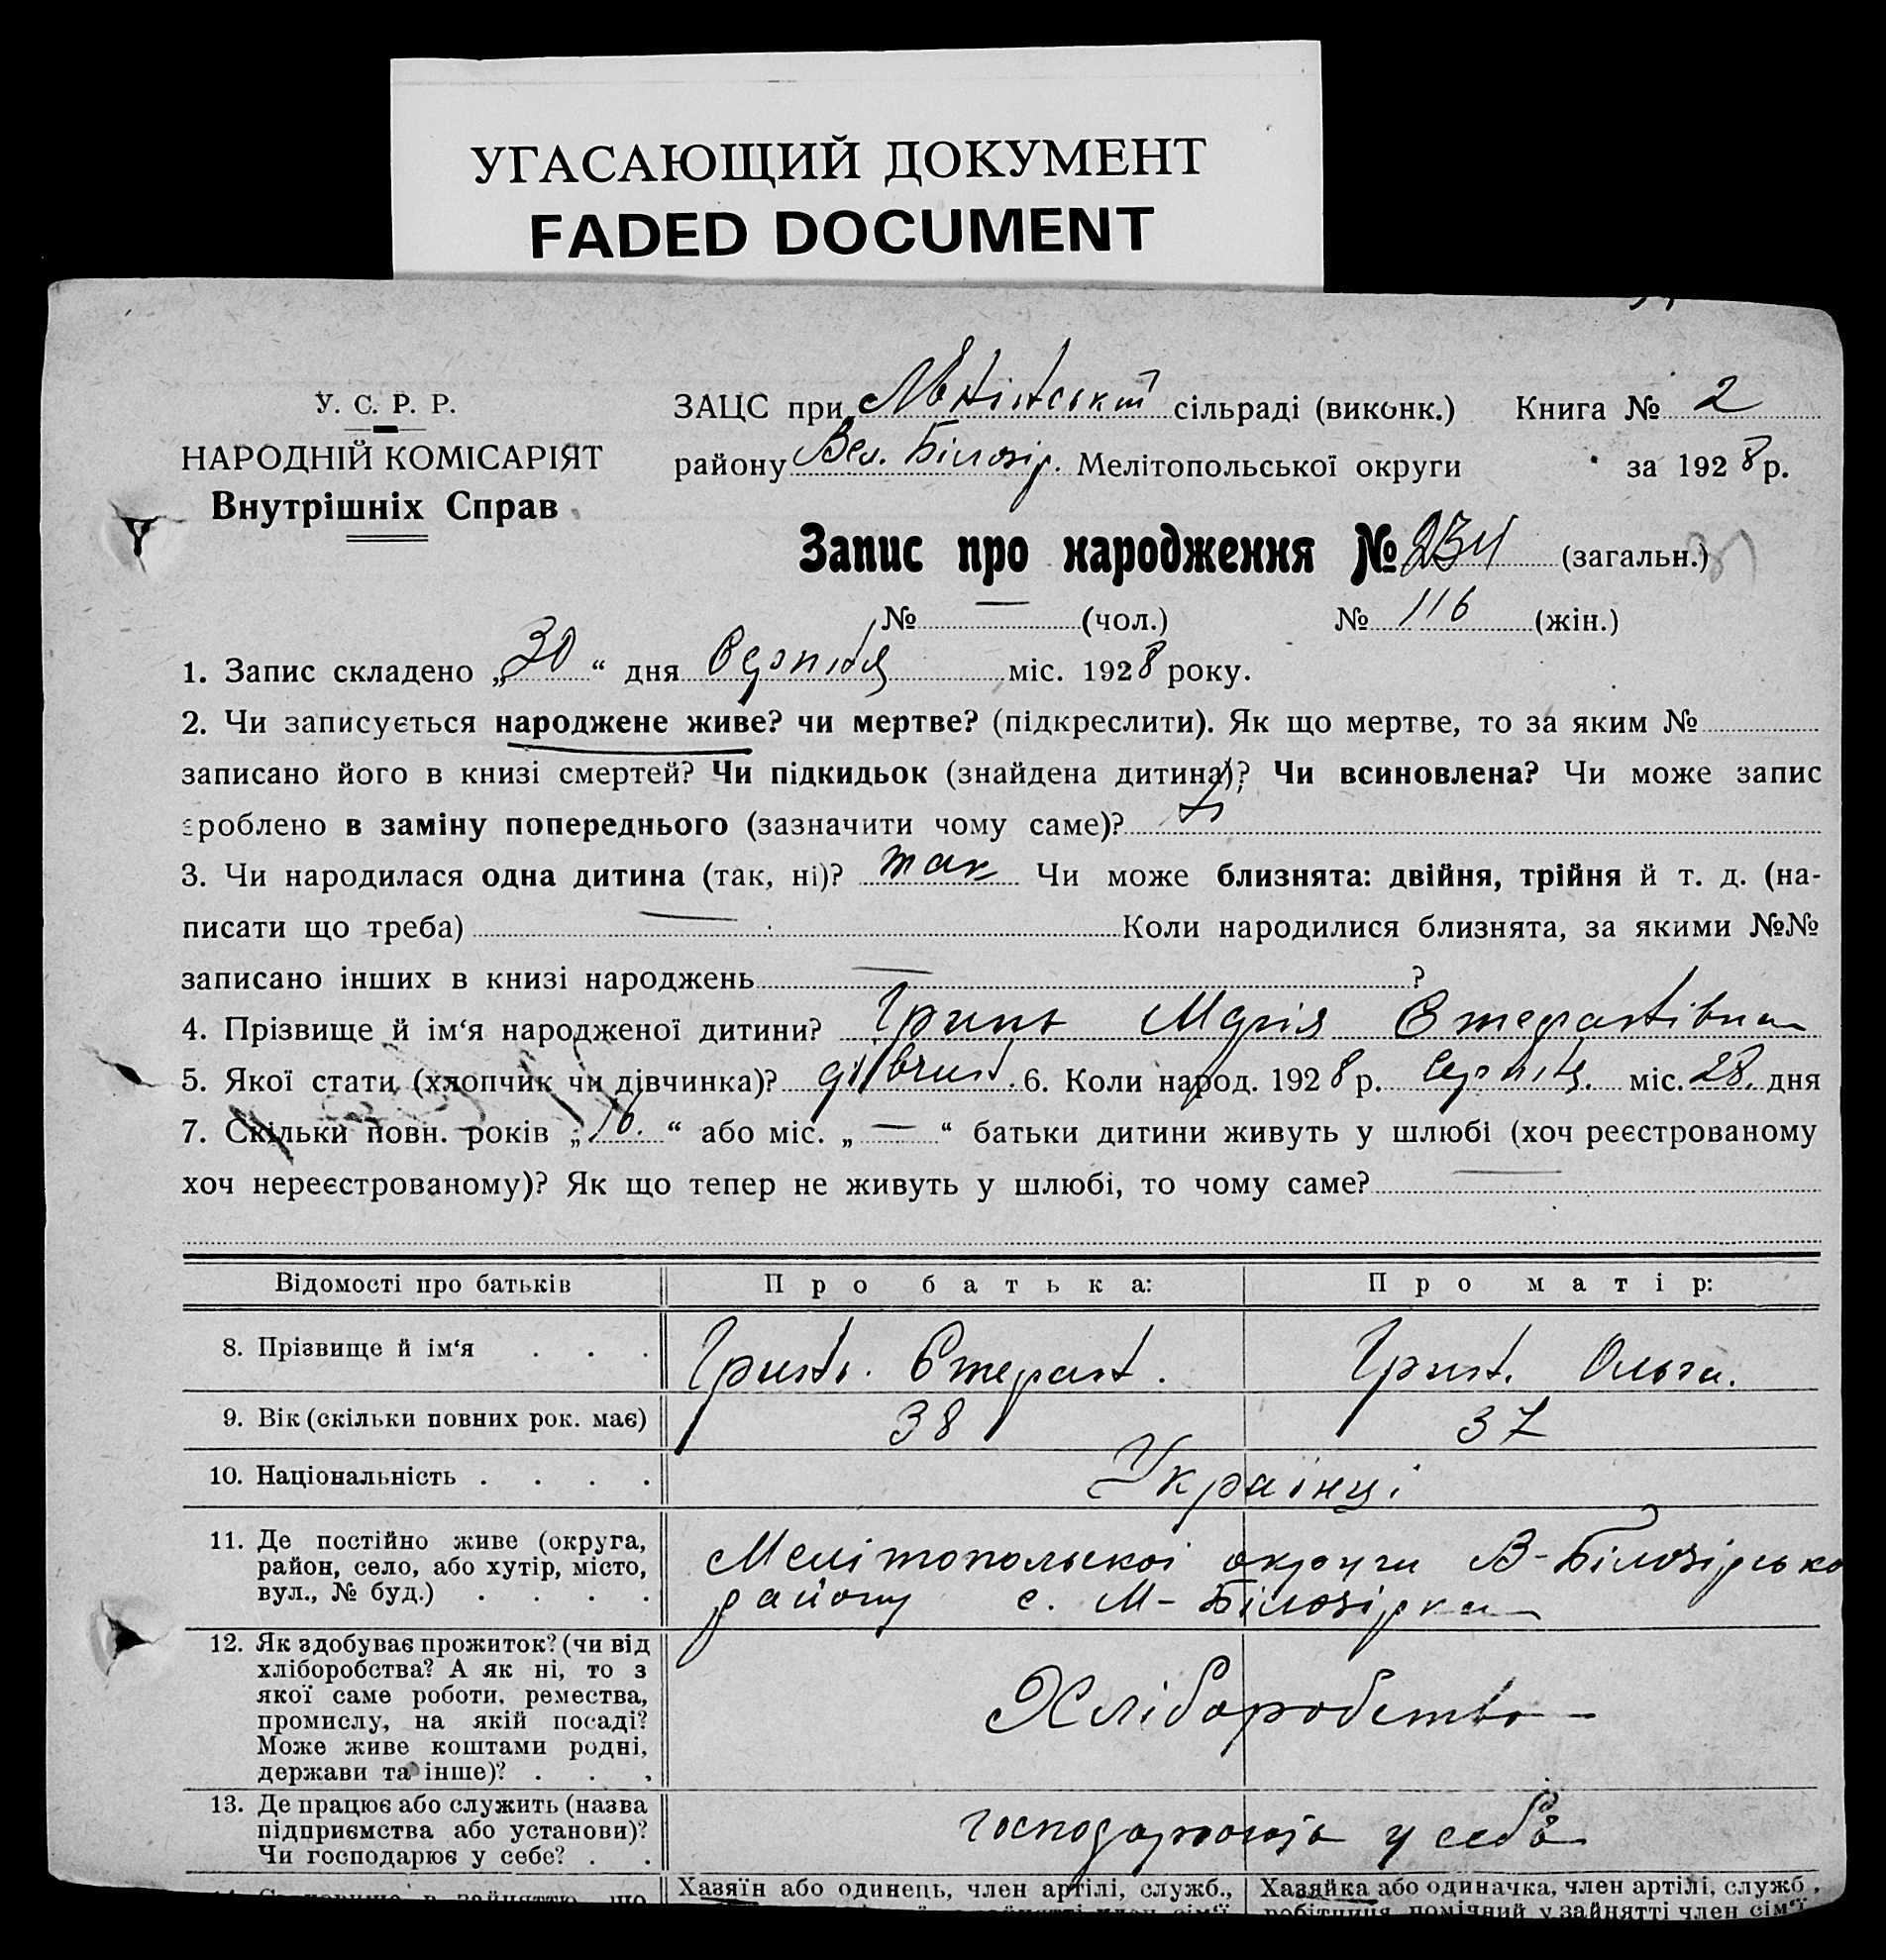 УГАСАЮЩИЙ ДОКУМЕНТ
FADED DOCUMENT
У. С. Р. Р.
НАРОДНІЙ КОМІСАРІЯТ
Внутрішніх Справ
ЗАЦС при сільраді (виконк.) Книга № 2
району Вел. Білозір. Мелітопольської округи за 1928 р.
Запис про народження № 234 (загальн.)
№ — (чол.) № 116 (жін.)
1. Запис складено „30“ дня міс. 1928 року.
2. Чи записується народжене живе? чи мертве? (підкреслити). Як що мертве, то за яким №
записано його в книзі смертей? Чи підкидьок (знайдена дитина)? Чи всиновлена? Чи може запис
зроблено в заміну попереднього (зазначити чому саме)?
3. Чи народилася одна дитина (так, ні)? так Чи може близнята: двійня, трійня й т. д. (на-
писати що треба) — Коли народилися близнята, за якими №№
записано інших в книзі народжень — ?
4. Прізвище й ім‘я народженої дитини? Гринь Марія
5. Якої стати (хлопчик чи дівчинка)? дівчин. 6. Коли народ. 1928 р. міс. 28. дня
7. Скільки повн. років „10.“ або міс. „—“ батьки дитини живуть у шлюбі (хоч реєстрованому
хоч нереєстрованому)? Як що тепер не живуть у шлюбі, то чому саме? —
Відомості про батьків Про батька: Про матір:
8. Прізвище й ім‘я . . . Гринь. Грин. Ольга.
9. Вік (скільки повних рок. має) 38 37
10. Національність . . . . Українці
11. Де постійно живе (округа,
район, село, або хутір, місто,
вул., № буд.) . . . .
Мелітопольскоі округи В-Білозірсько
району с. М-Білозірка
12. Як здобуває прожиток? (чи від
хліборобства? А як ні, то з
якої саме роботи, ремества,
промислу, на якій посаді?
Може живе коштами родні,
держави та інше)? . . .
Хліборобство
13. Де працює або служить (назва
підприємства або установи)?
Чи господарює у себе? . .
у себе
Хазяїн або одинець, член артілі, служб., Хазяйка або одиначка, член артілі, служб.,
робітниця, помічний у зайнятті член сім‘ї